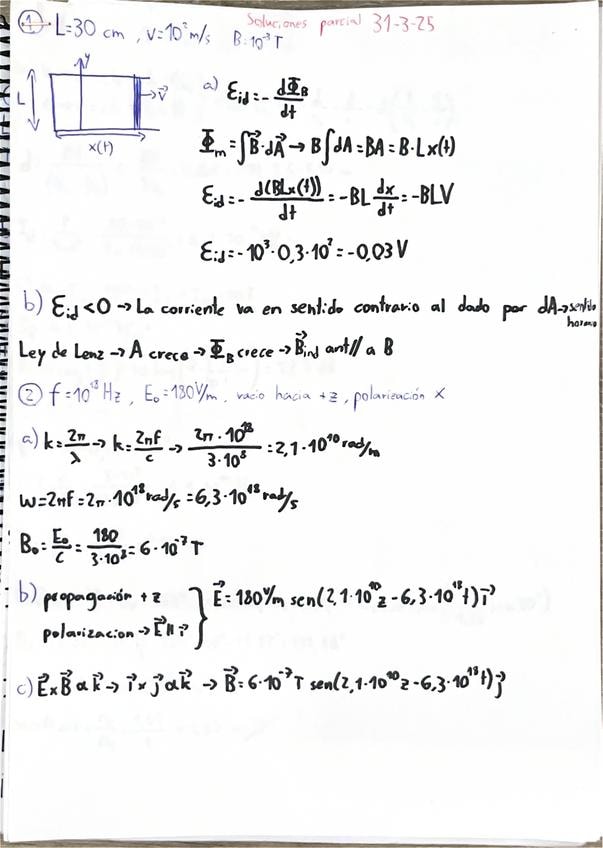 Soluciones parcial 31-3-25
① L=30 cm , v=10² m/s B=10⁻³ T
y
L
→ v⃗
x(t)
a) Ɛid = - dΦB/dt
Φm = ∫B⃗·dA⃗ → B∫dA = BA = B·Lx(t)
Ɛid = - d(BLx(t))/dt = -BL dx/dt = -BLV
Ɛid = -10³·0,3·10² = -0,03 V
b) Ɛid < 0 → La corriente va en sentido contrario al dado por dA → sentido
horario
Ley de Lenz → A crece → ΦB crece → B⃗ind anti// a B
② f=10¹⁸ Hz , E₀=180 V/m , vacío hacia +z , polarización x
a) k = 2π/λ → k = 2πf/c → 2π·10¹⁸/3·10⁸ = 2,1·10¹⁰ rad/m
w=2πf=2π·10¹⁸ rad/s = 6,3·10¹⁸ rad/s
B₀ = E₀/c = 180/3·10⁸ = 6·10⁻⁷ T
b) propagación +z
polarizacion → E⃗ || i⃗
} E⃗ = 180 V/m sen(2,1·10¹⁰z - 6,3·10¹⁸t) i⃗
c) E⃗ x B⃗ α k⃗ → i⃗ x j⃗ α k⃗ → B⃗ = 6·10⁻⁷ T sen(2,1·10¹⁰z - 6,3·10¹⁸t) j⃗